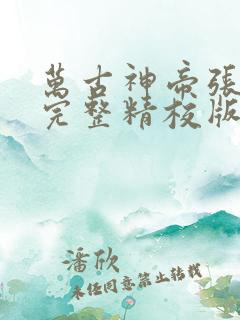 萬古神帝張
完整精校版
潘欣
未經同意禁止轉載